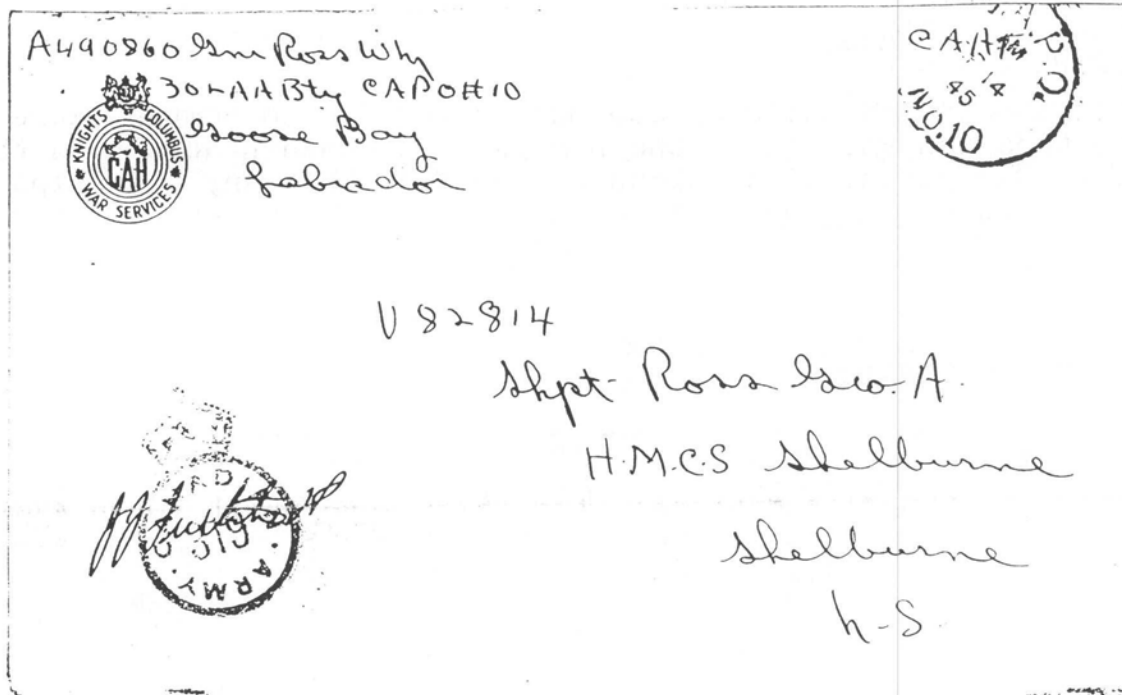 A490860 Gnr Ross Why
30 LAA Bty CAPO #10
Goose Bay
Labrador
KNIGHTS OF COLUMBUS
CAH
WAR SERVICES
P.O.
CAH
45
NO.10
V 82814
Shpt Ross Geo. A.
H.M.C.S Shelburne
Shelburne
N-S.
ARMY